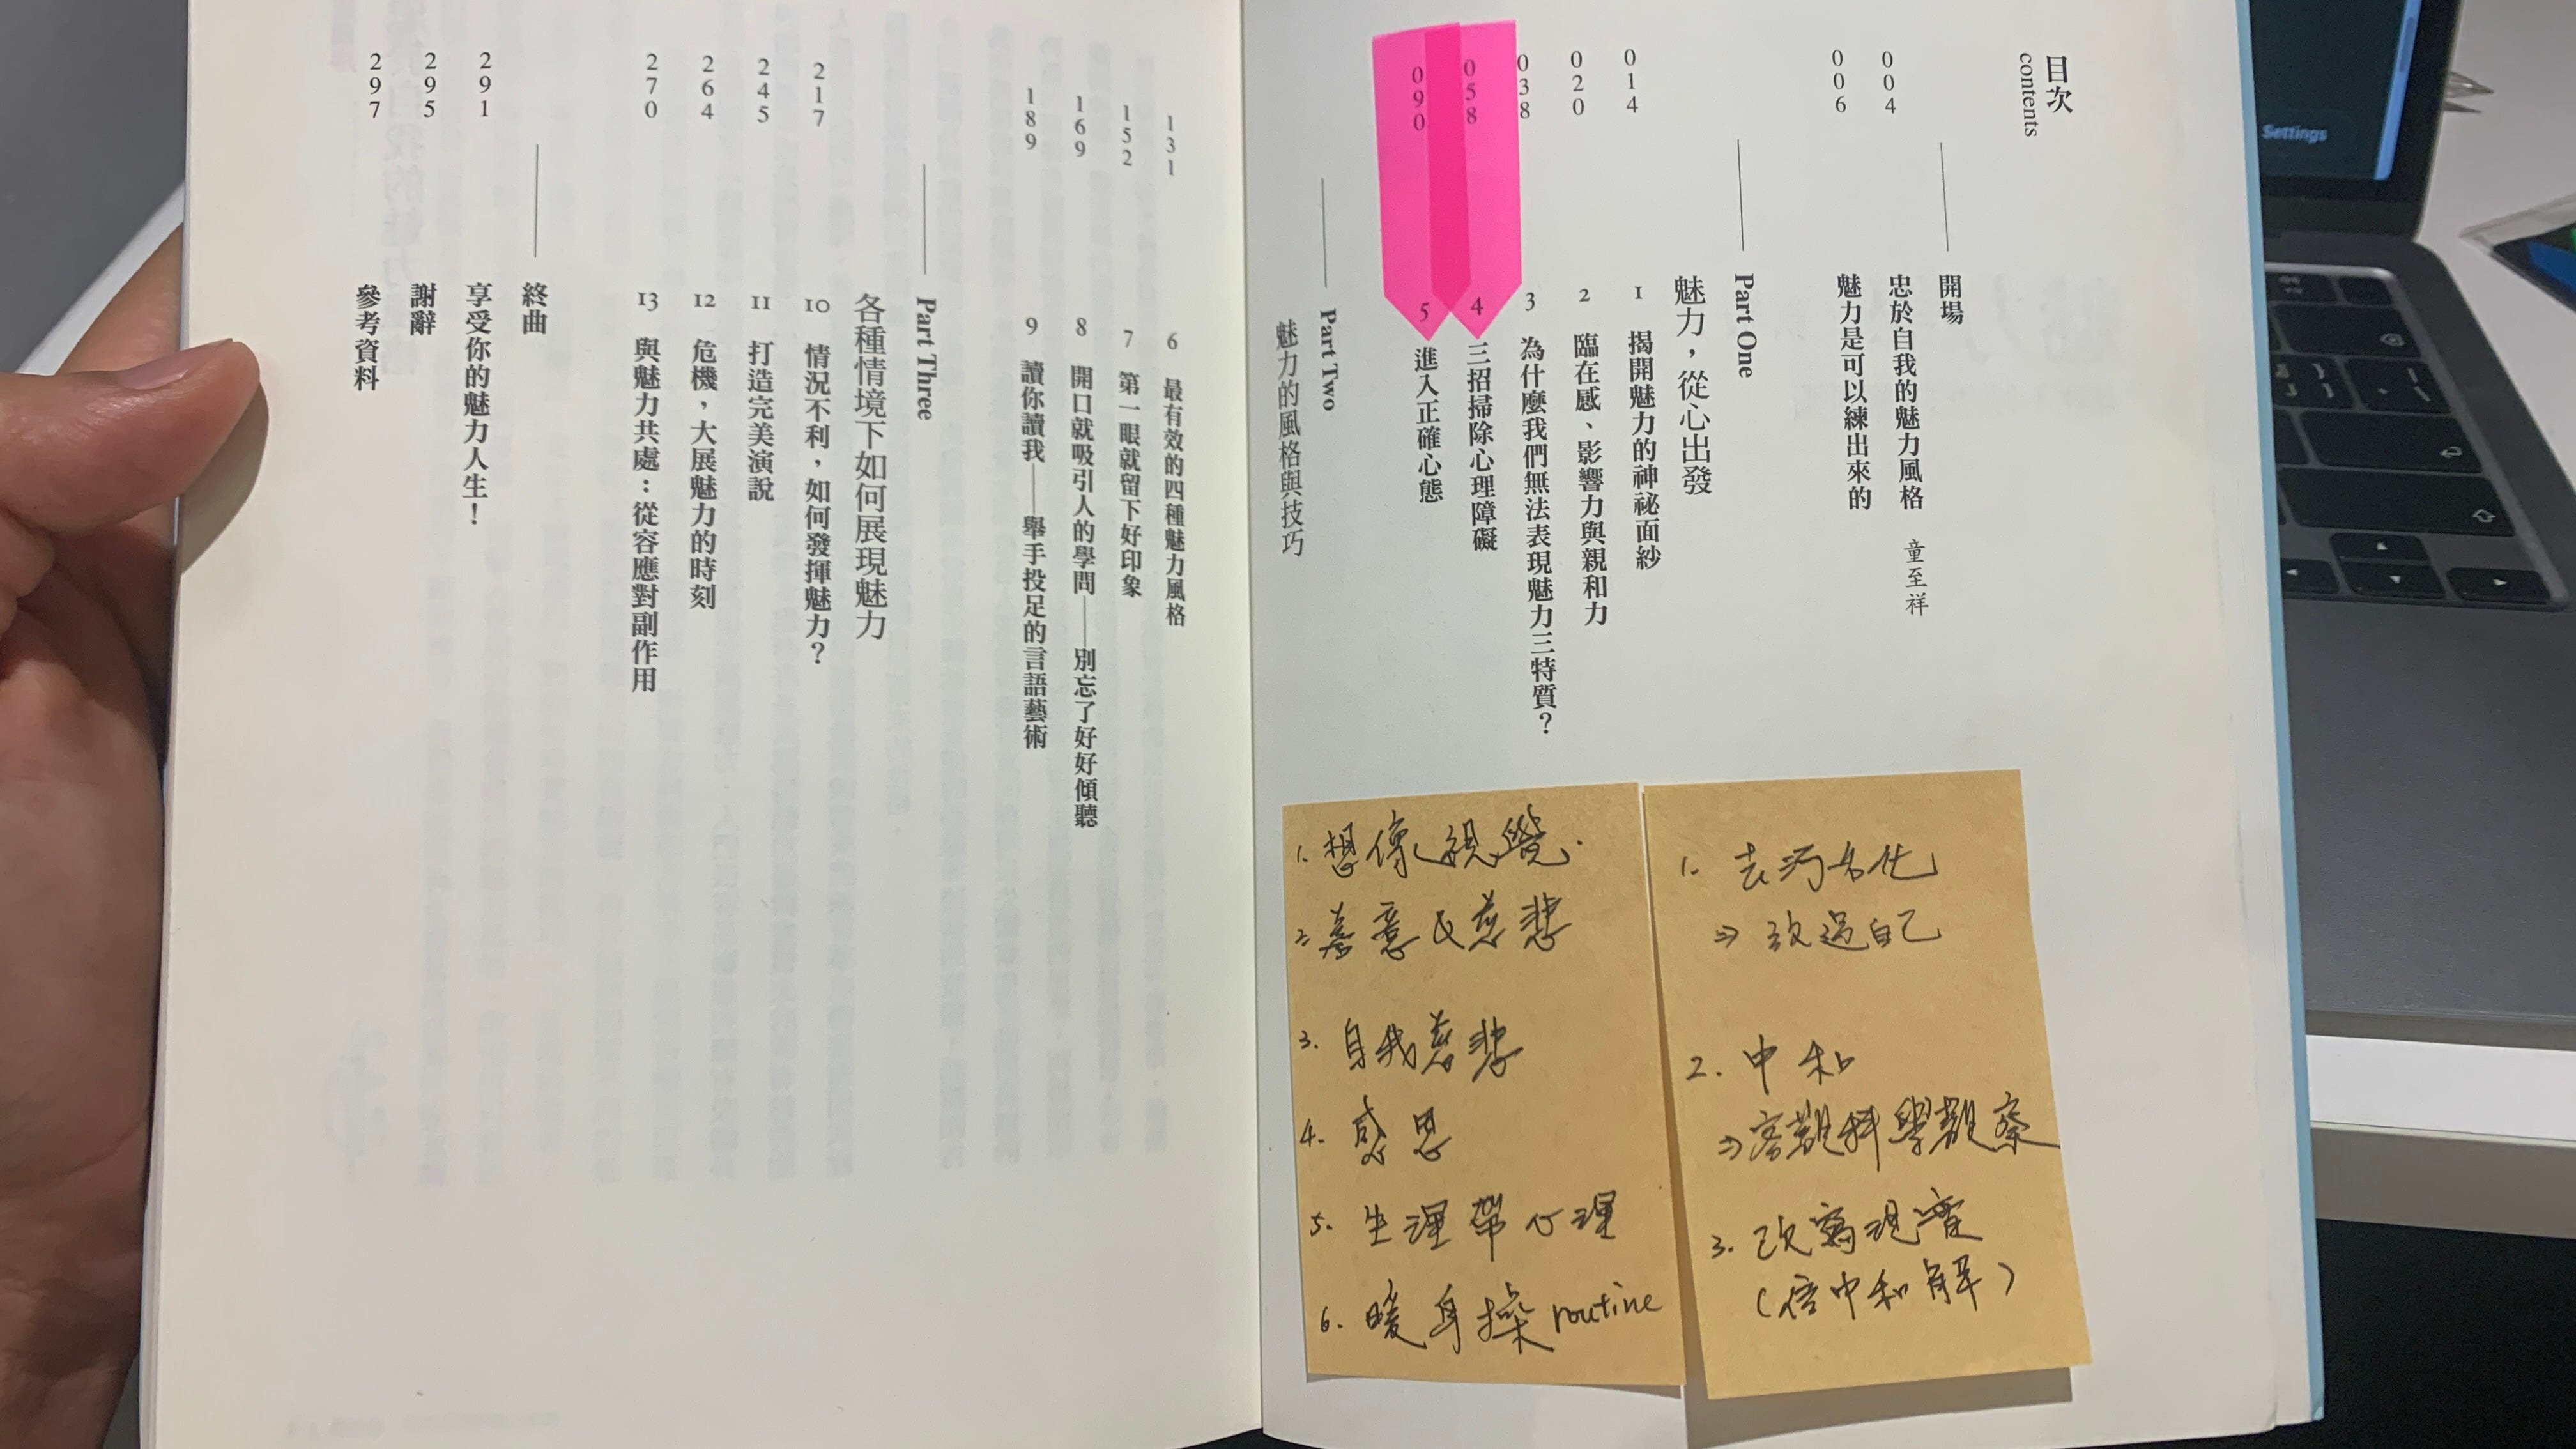 目次
contents
004
006
開場
忠於自我的魅力風格 童至祥
魅力是可以練出來的
Part One
魅力，從心出發
014 1 揭開魅力的神祕面紗
020 2 臨在感、影響力與親和力
038 3 為什麼我們無法表現魅力三特質？
058 4 三招掃除心理障礙
090 5 進入正確心態
Part Two
魅力的風格與技巧
131 6 最有效的四種魅力風格
152 7 第一眼就留下好印象
169 8 開口就吸引人的學問——別忘了好好傾聽
189 9 讀你讀我——舉手投足的言語藝術
Part Three
各種情境下如何展現魅力
217 10 情況不利，如何發揮魅力？
245 11 打造完美演說
264 12 危機，大展魅力的時刻
270 13 與魅力共處：從容應對副作用
終曲
291 享受你的魅力人生！
295 謝辭
297 參考資料
1. 去污名化
⇒ 放過自己
2. 中和
⇒ 客觀科學觀察
3. 改寫現實
(倍中和解)
1. 想像視覺
2. 善意&慈悲
3. 自我慈悲
4. 感恩
5. 生理帶心理
6. 暖身操routine
Settings